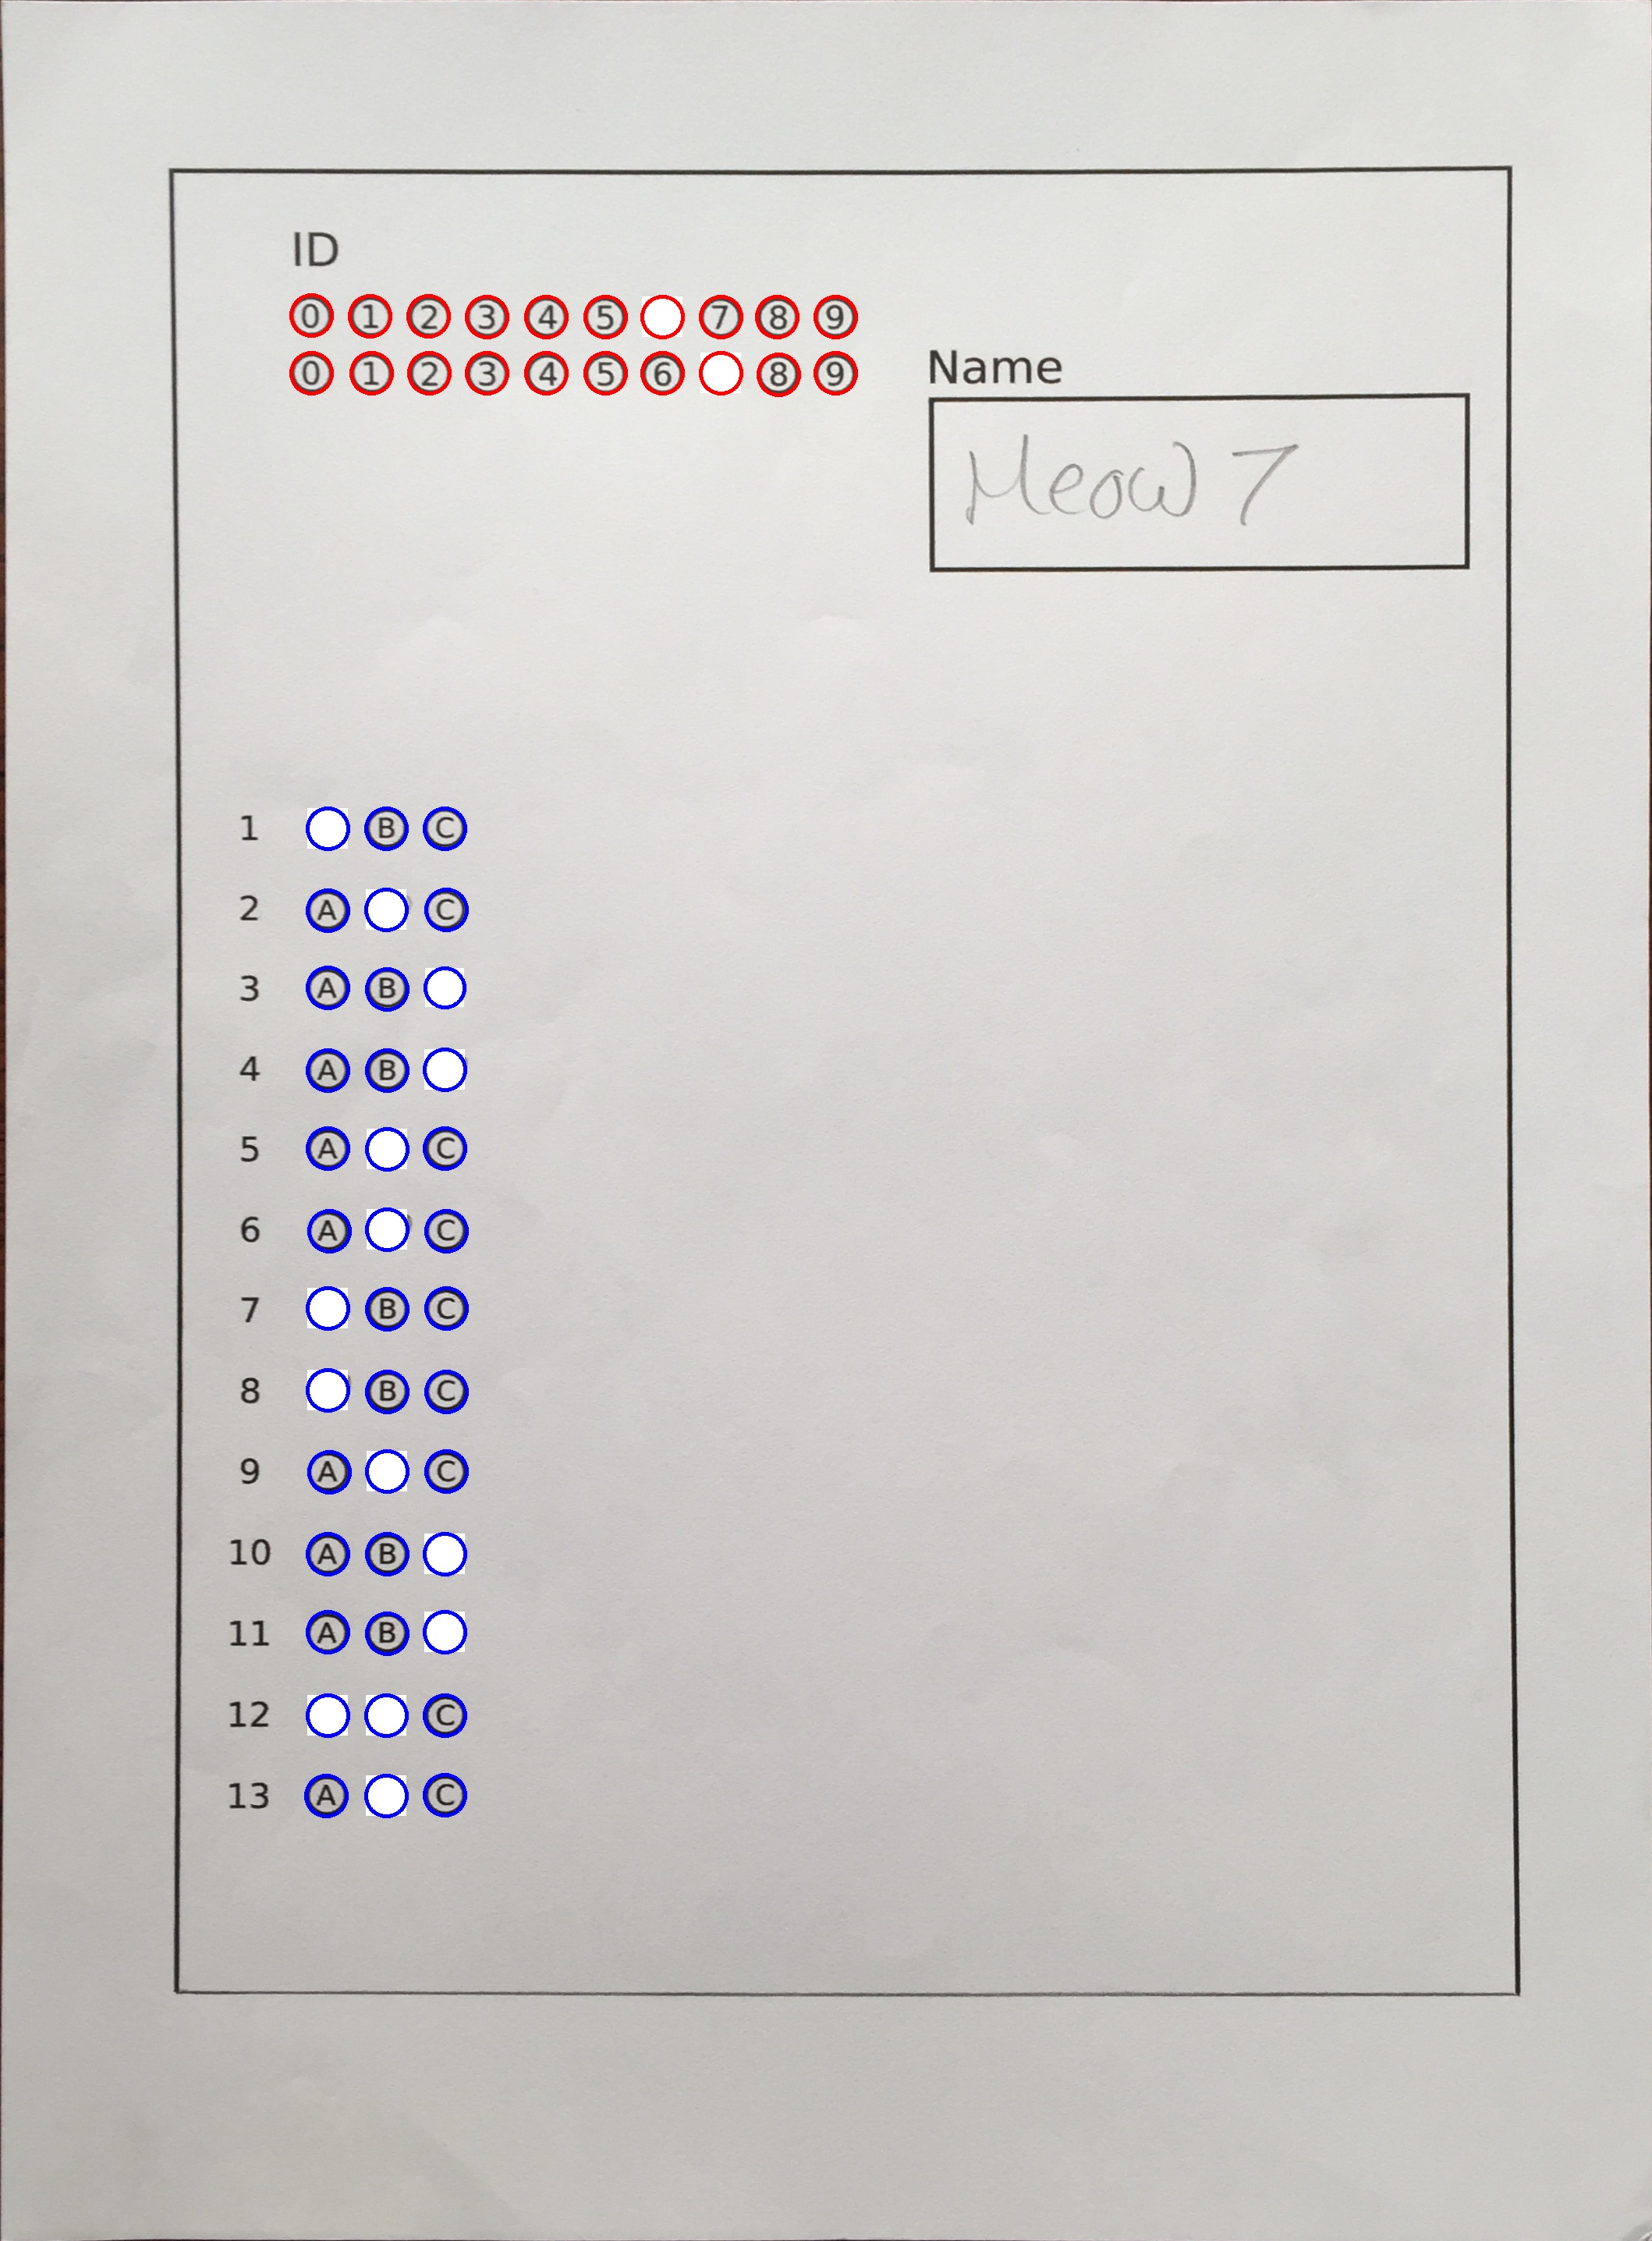 ID
0 1 2 3 4 5 7 8 9
0 1 2 3 4 5 6 8 9
Name
Meow 7
1 B C
2 A C
3 A B
4 A B
5 A C
6 A C
7 B C
8 B C
9 A C
10 A B
11 A B
12 C
13 A C